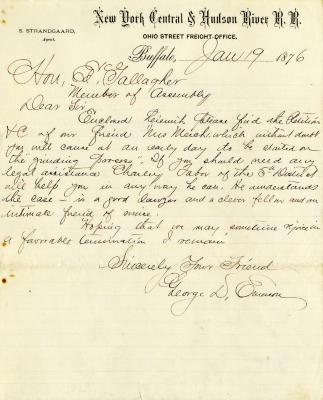 New York Central & Hudson River R. R.
S. STRANDGAARD,
Agent.
OHIO STREET FREIGHT-OFFICE,
Buffalo, Jan 19 1876
Hon. Ed Gallagher
Member of Assembly
Dear Sir
Enclosed herewith please find the Petition
&C of our friend Mrs which without doubt
you will cause at an early day to be started on
the "grinding process". If you should need any
legal assistance Charley Tabor of the 5th District
will help you in any way he can. He understands
the case – is a good lawyer and a clever fellow and an
intimate friend of mine.
Hoping that we may sometime rejoice in
a favorable termination I remain
Sincerely Your Friend
George D. Emerson